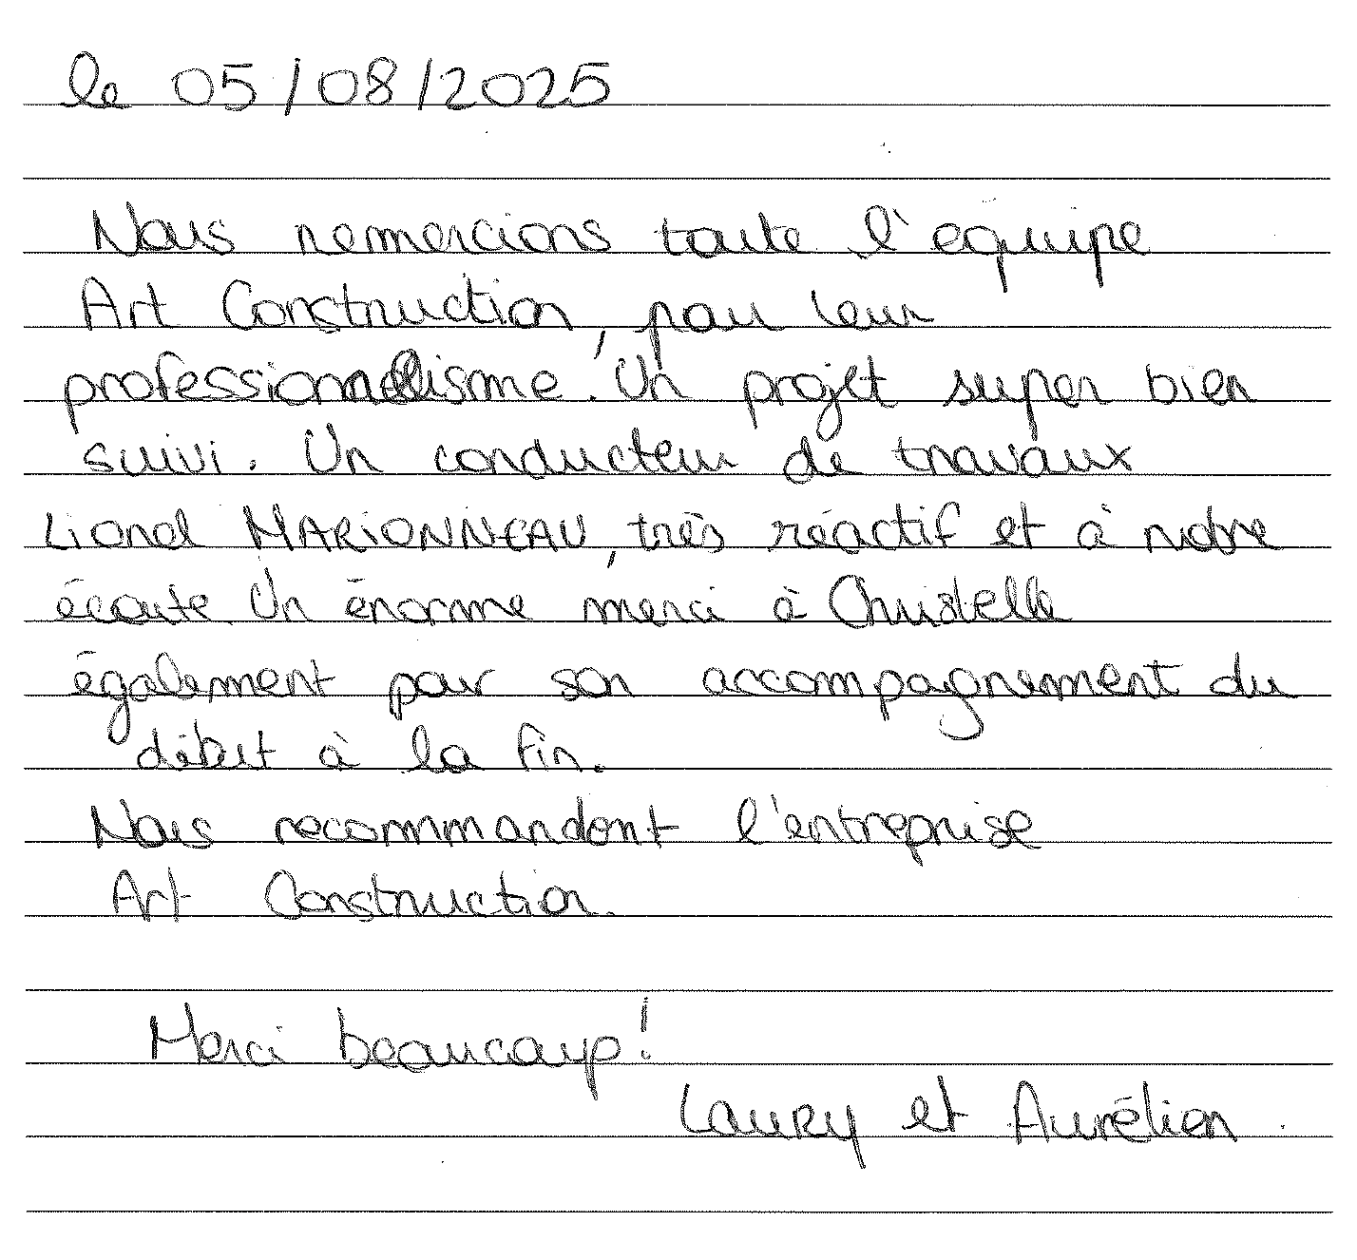 le 05/08/2025
Nous remercions toute l'équipe
Art Construction, pour leur
professionnalisme. Un projet super bien
suivi. Un conducteur de travaux
Lionel MARIONNEAU, très réactif et à notre
écoute. Un énorme merci à Christelle
également pour son accompagnement du
début à la fin.
Nous recommandont l'entreprise
Art Construction.
Merci beaucoup!
Laury et Aurélien.